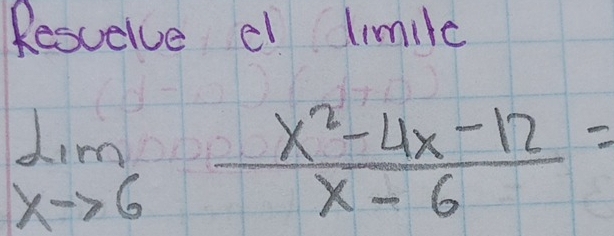 Resuelve el limite
Lim x²-4x-12 =
x->6 x-6